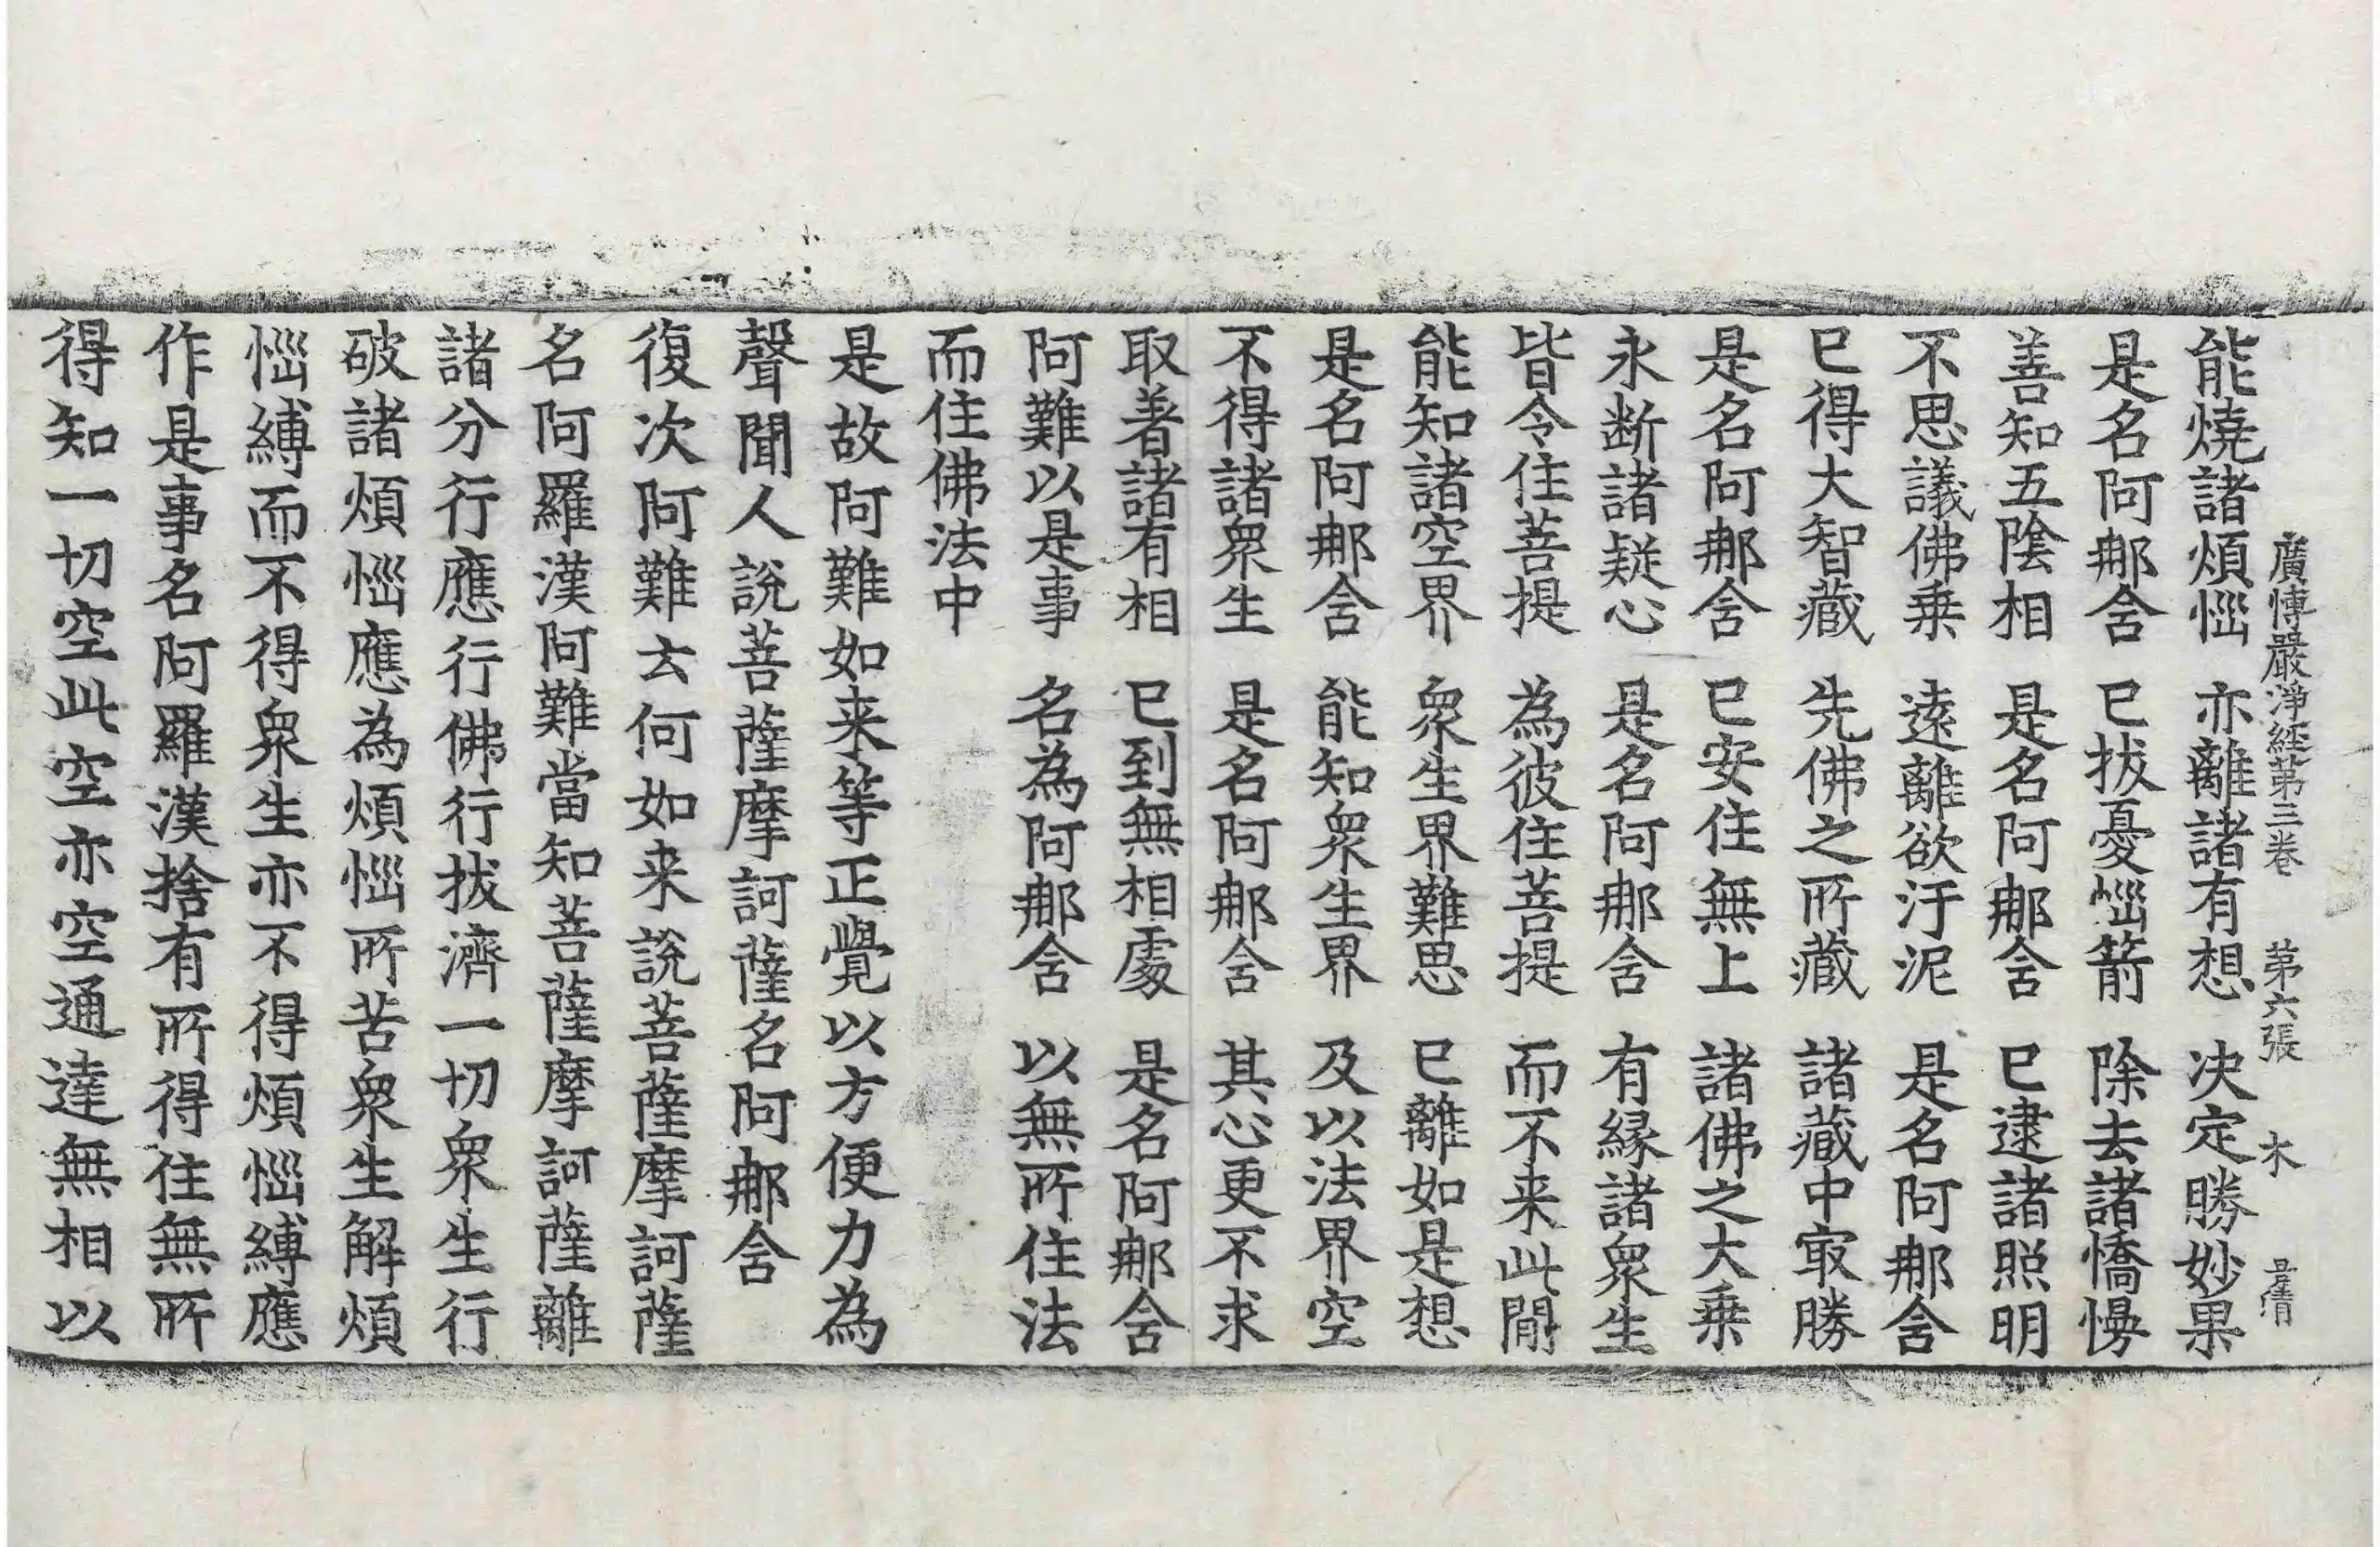 廣博嚴淨經第三卷 第六張 木
能燒諸煩惱 亦離諸有想 决定勝妙果
是名阿那含 已拔憂惱箭 除去諸憍慢
善知五陰相 是名阿那含 已逮諸照明
不思議佛乗 遠離欲汙泥 是名阿那含
已得大智藏 先佛之所藏 諸藏中㝡勝
是名阿那含 已安住無上 諸佛之大乗
永断諸疑心 是名阿那含 有縁諸衆生
皆令住菩提 為彼住菩提 而不来此閒
能知諸空界 衆生界難思 已離如是想
是名阿那含 能知衆生界 及以法界空
不得諸衆生 是名阿那含 其心更不求
取著諸有相 已到無相處 是名阿那含
阿難以是事 名為阿那含 以無所住法
而住佛法中
是故阿難如来等正覺以方便力為
聲聞人說菩薩摩訶薩名阿那含
復次阿難云何如来說菩薩摩訶薩
名阿羅漢阿難當知菩薩摩訶薩離
諸分行應行佛行拔濟一切衆生行
破諸煩惱應為煩惱所苦衆生解煩
惱縛而不得衆生亦不得煩惱縛應
作是事名阿羅漢捨有所得住無所
得知一切空此空亦空通達無相以